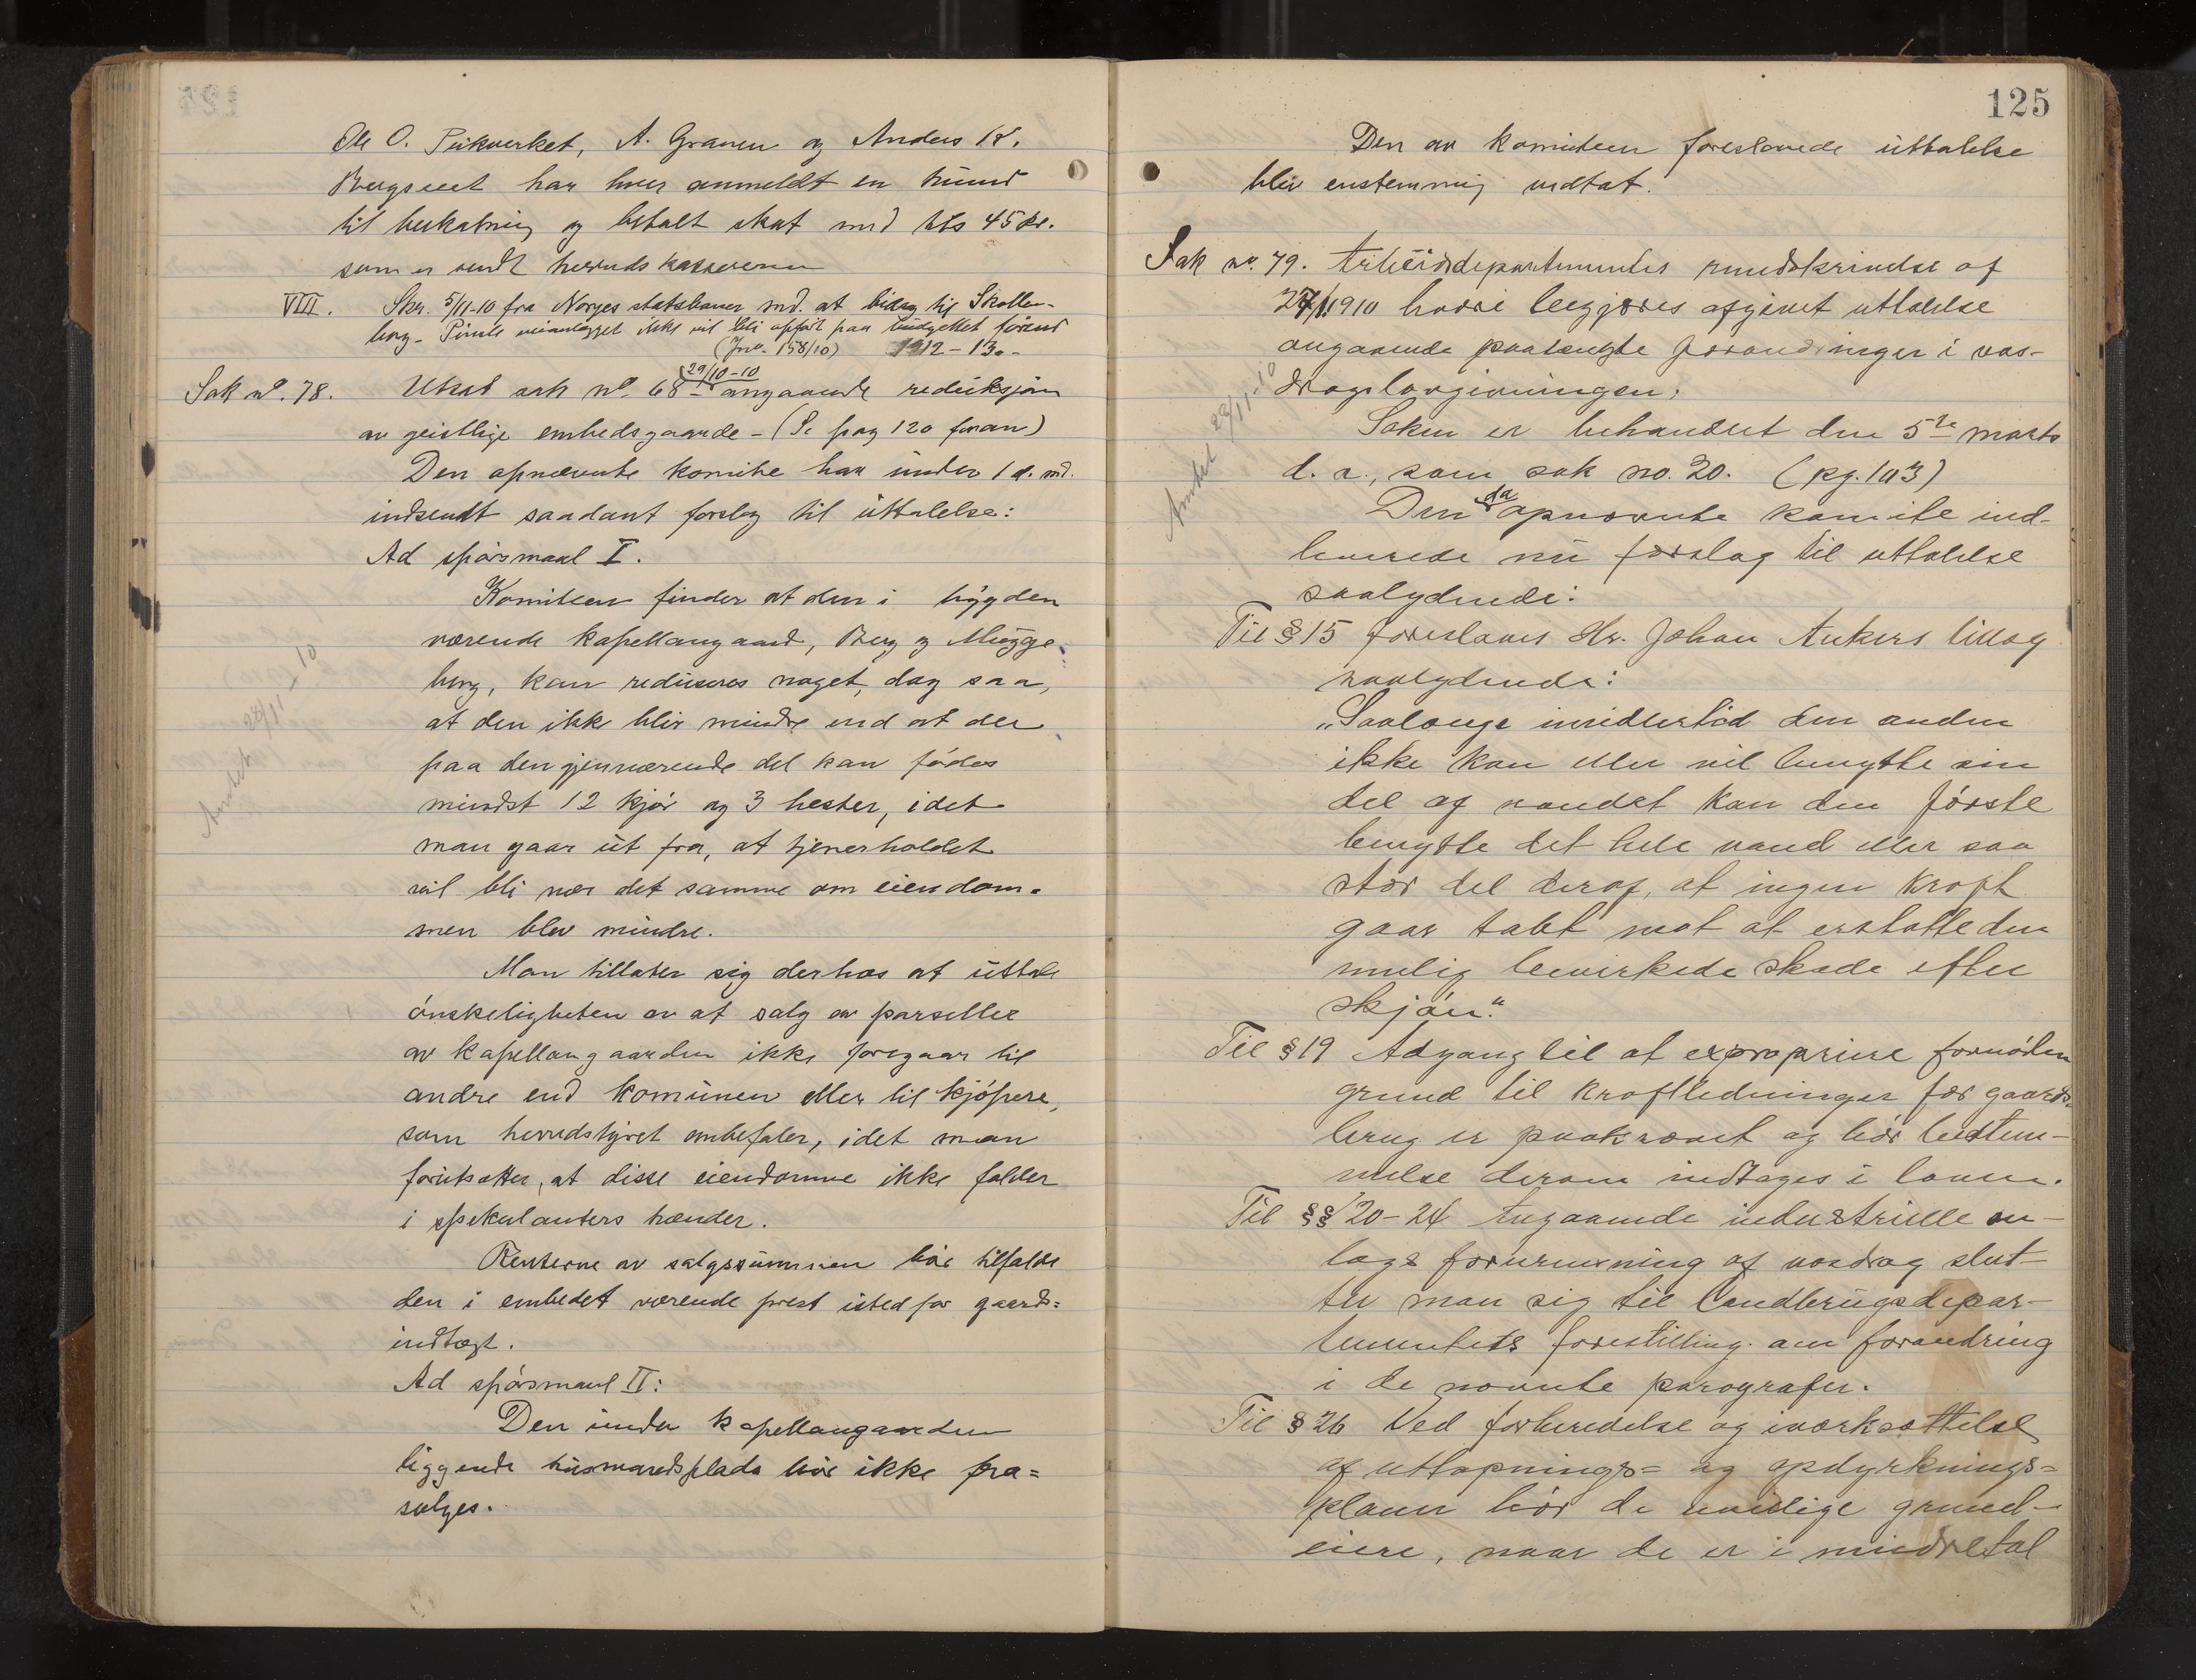 Ole O. Pukverket, A. Graven og Anders K.
Bergseet har hver anmeldt en hund
til beskatning og betalt skat med tils 45 kr.
som er sendt herredskassereren
VIII. Skr. 5/11-10 fra Norges statsbaner med. at bidrag til Skollen-
borg - veianlægget ikke vil bli opført paa budgettet førend
(Jno. 158/10) 1912-13.-
29/10-10
Sak no. 78. Utsat sak no. 68 angaaende reduksjon
av geistlige embedsgaarde - (Se pag 120 foran)
Den opnævnte komite har under 1 d. md.
indsendt saadant forslag til uttalelse:
Ad spørsmaal I.
Komiteen finder at den i bygden
værende kapellangaard, Berg og Mugge-
berg, kan reduseres noget, dog saa,
at den ikke blir mindre end at der
paa den gjenværende del kan fødes
mindst 12 kjør og 3 hester, idet
man gaar ut fra, at tjenerholdet
vil bli nær det samme om eiendom-
men blev mindre.
Man tillater sig derhos at uttale
ønskeligheten av at salg av parseller
av kapellangaarden ikke foregaar til
andre end komunen eller til kjøpere,
som herredstyret anbefaler, idet man
forutsætter, at disse eiendomme ikke falder
i spekulanters hænder.
Renterne av salgssummen bør tilfalde
den i embedet værende prest istedfor gaards=
indtægt.
Ad spørsmaal II:
Den under kapellangaarden
liggende husmandsplads bør ikke fra=
sælges.
Anket 28/11-10
125
Den av komiteen foreslaaede uttalelse
blev enstemmig vedtat.
Sak no. 79. Arbeidsdepartementets rundskrivelse af
1910 hvori begjæres afgivet uttalelse
angaaende paatænkte forandringer i vas-
dragslovgivningen.
Saken er behandlet den 5te marts
d. a., som sak no. 20. (pg. 103)
Den da opnævnte komite ind-
leverede nu forslag til uttalelse
saalydende:
Til § 15 foreslaaes Hr. Johan Ankers tillæg
saalydende:
„Saalænge imidlertid den anden
ikke kan eller vil benytte sin
del af vandet kan den første
benytte det hele vand eller saa
stor del deraf, at ingen kraft
gaar tabt mot at erstatte den
mulig bevirkede skade efter
skjøn."
Til § 19 Adgang til at expropriere fornøden
grund til kraftledninger for gaards-
brug er paakrævet og bør bestem-
melse derom indtages i loven.
Til §§ 20-24 Angaaende industrielle an-
lægs forurensning af vasdrag slut-
ter man sig til Landbrugsdepar-
tementets forestilling om forandring
i de nævnte parografer.
Til § 26 Ved forberedelse og iværksættelse
af uttapnings= og opdyrknings=
planer bør de uvillige grund-
eiere, naar de er i mindretal
Anket 28/11-10